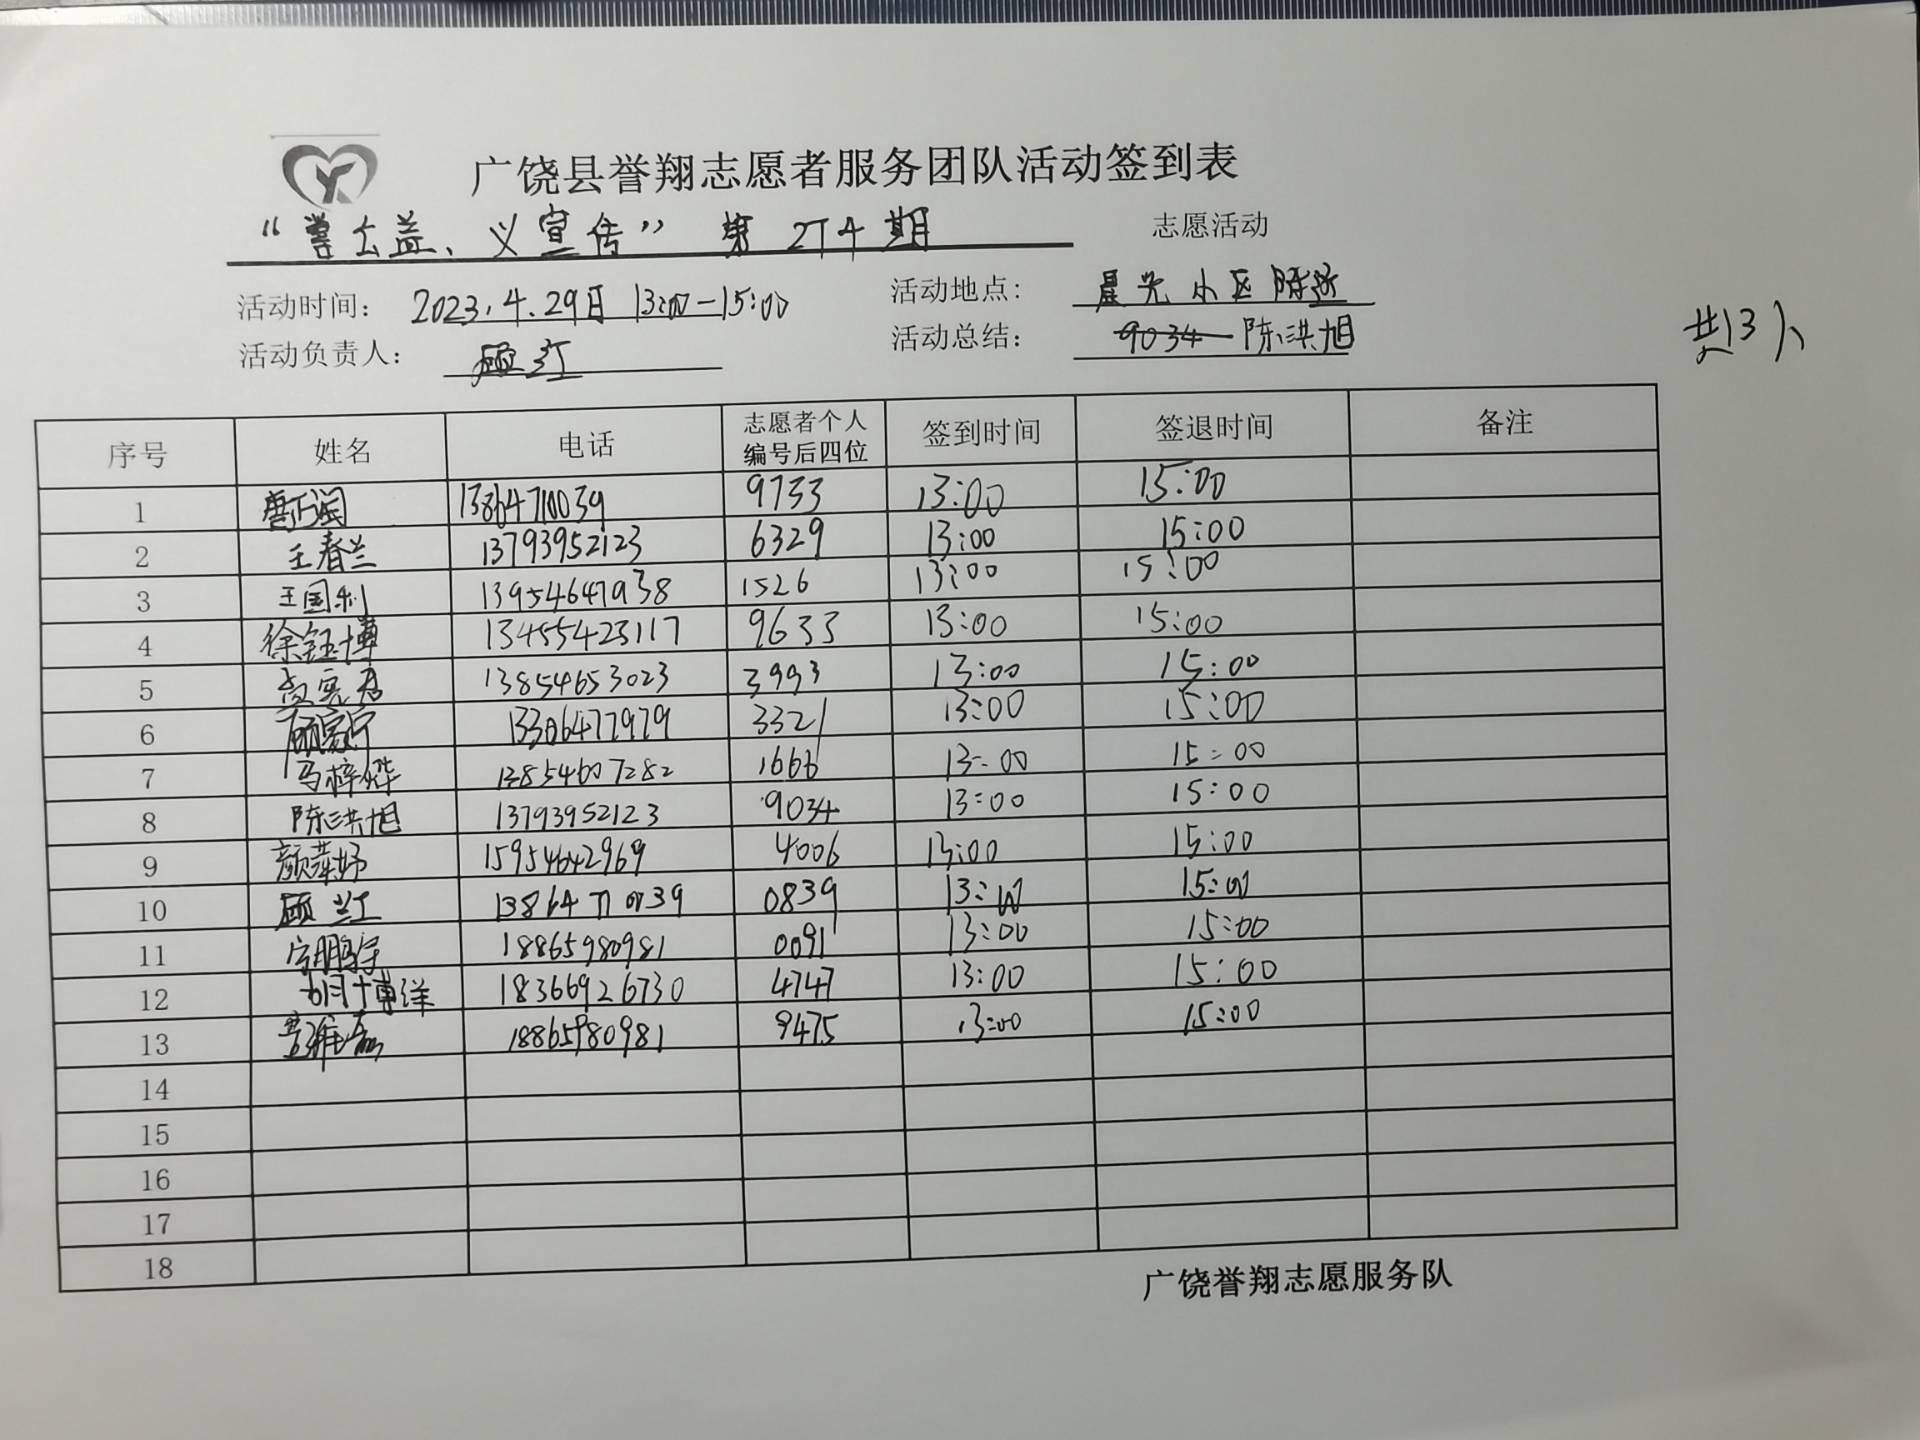 广饶县誉翔志愿者服务团队活动签到表
义宣传” 第274期 志愿活动
活动时间： 2023.4.29日 13:00-15:00 活动地点： 晨光小区
活动负责人： 顾 活动总结： 9034 陈洪旭
共13人
序号 姓名 电话 志愿者个人编号后四位 签到时间 签退时间 备注
1 13864710039 9733 13:00 15:00
2 王春兰 13793952123 6329 13:00 15:00
3 王国利 13954647938 1526 13:00 15:00
4 徐钰博 13455423117 9633 13:00 15:00
5 13854653023 3993 13:00 15:00
6 3321 13:00 15:00
7 马梓烨 13854607282 1666 13:00 15:00
8 陈洪旭 13793952123 9034 13:00 15:00
9 15954642969 4006 13:00 15:00
10 顾兰江 0839 13:00 15:00
11 18865980981 0091 13:00 15:00
12 博洋 18366926730 4747 13:00 15:00
13 18865980981 9475 13:00 15:00
14
15
16
17
18
广饶誉翔志愿服务队